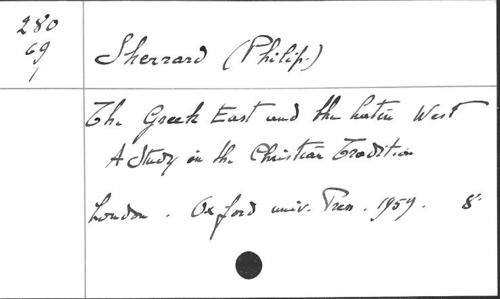 280
69
Sherrard (Philip.)
The Greek East and the Latin West
A Study in the Christian Tradition
London. Oxford univ. Press. 1959. 8º